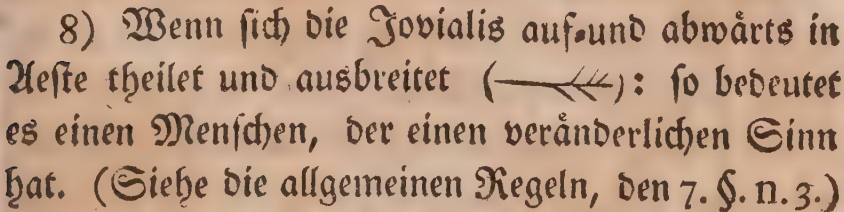 8) Wenn ſich die Jovialis auf-und abwårts in
Aeſte theilet und ausbreitet ( ): ſo bedeutet
es einen Menſchen, der einen verånderlichen Sinn
hat. (Siehe die allgemeinen Regeln, den 7. §. n. 3.)